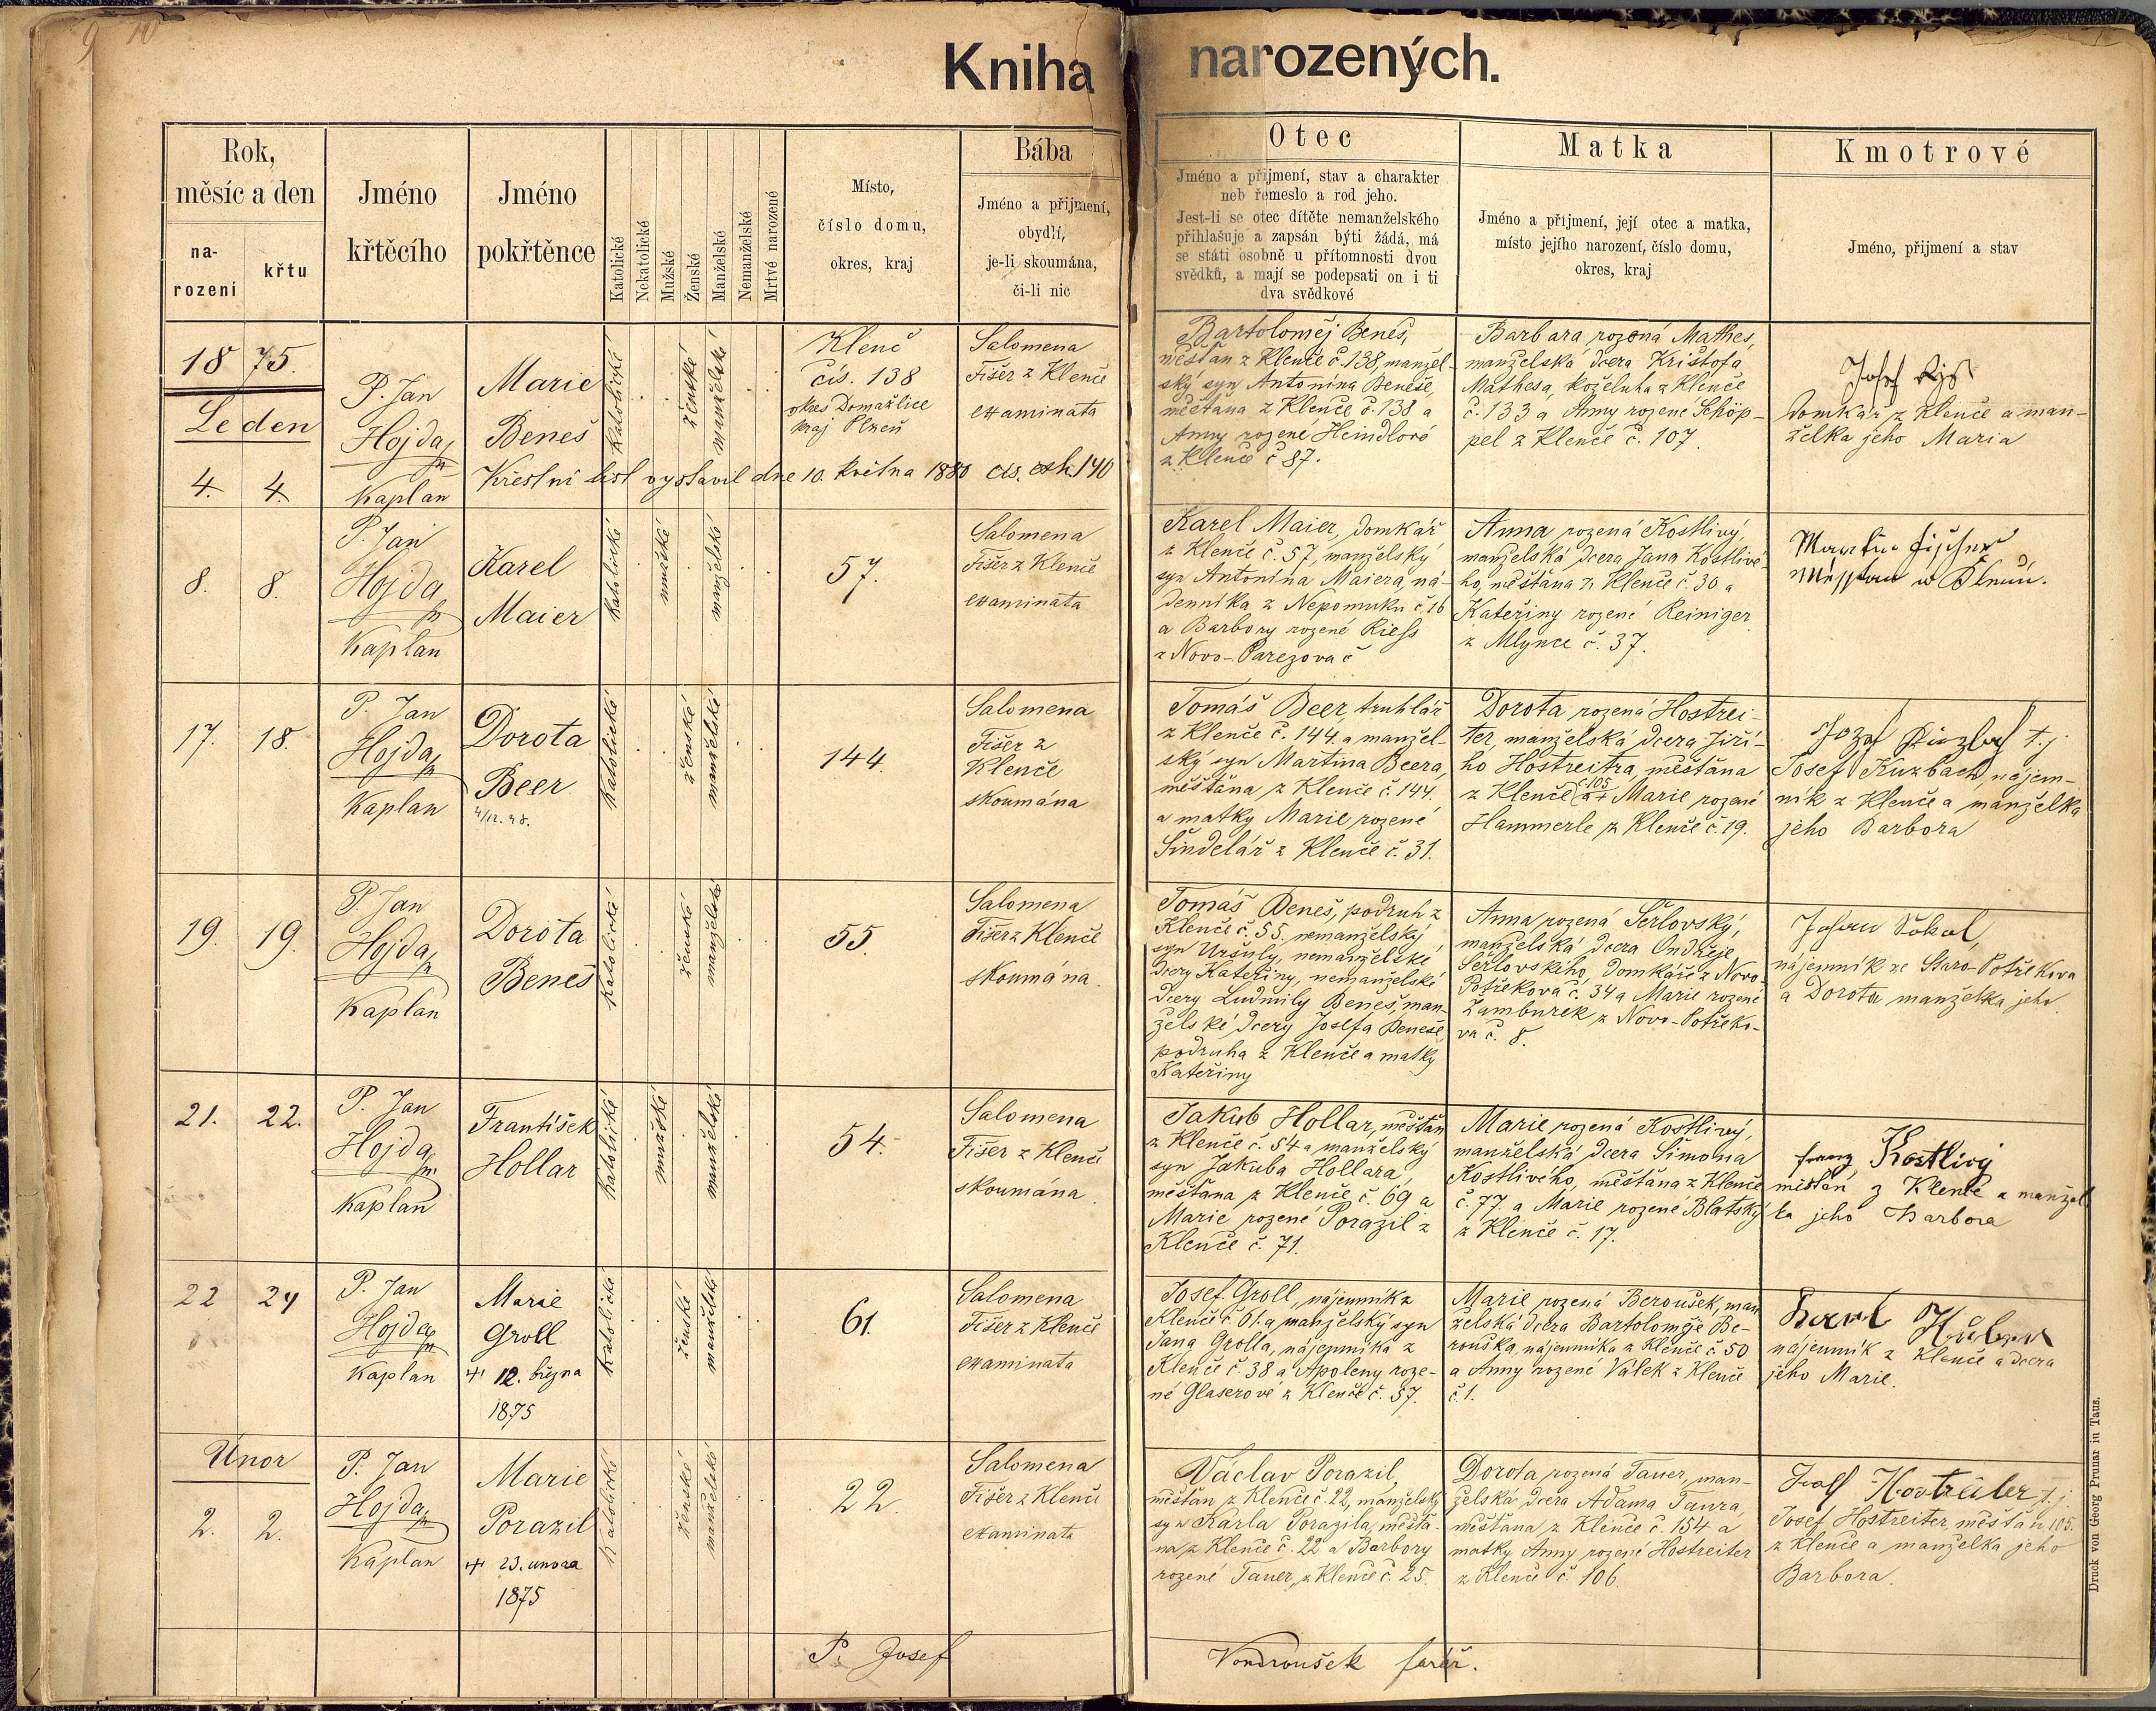 9 10
Kniha narozených.
Rok,
měsíc a den
na-
rození
křtu
Jméno
křtěcího
Jméno
pokřtěnce
Katolické
Nekatolické
Mužské
Ženské
Manželské
Nemanželské
Mrtvé narozené
Místo,
číslo domu,
okres, kraj
Bába
Jméno a přijmení,
obydlí,
je-li skoumána,
či-li nic
Otec
Jméno a přijmení, stav a charakter
neb řemeslo a rod jeho.
Jest-li se otec dítěte nemanželského
přihlašuje a zapsán býti žádá, má
se státi osobně u přítomnosti dvou
svědků, a mají se podepsati on i ti
dva svědkové
Matka
Jméno a přijmení, její otec a matka,
místo jejího narození, číslo domu,
okres, kraj
Kmotrové
Jméno, přijmení a stav
1875.
Leden
4. 4.
P. Jan
Hojda
Kaplan
Marie
Beneš
Katolické
ženské
manželské
Klenč
čís. 138
okres Domažlice
kraj Plzeň
Salomena
Fišer z Klenče
examinata
Křestní list vystavil dne 10. května 1880 čís. exh. 140
Bartoloměj Beneš,
měšťan z Klenče č. 138, manžel-
ský syn Antonína Beneše,
měšťana z Klenče č. 138 a
Anny rozené Heindlové
z Klenče č 87.
Barbara rozená Mathes,
manželská dcera Krištofa
Mathesa, koželuha z Klenče
č. 133 a Anny rozené Schöp-
pel z Klenče č. 107.
Josef
domkář z Klenče a man-
želka jeho Maria
8. 8.
P. Jan
Hojda
Kaplan
Karel
Maier
Katolické
mužské
manželské
57.
Salomena
Fišer z Klenče
examinata
Karel Maier, domkář
z Klenče č. 57, manželský
syn Antonína Maiera, ná-
denníka z Nepomuku č. 16
a Barbory rozené Riess
z Novo-Parezova č
Anna rozená Kostlivý,
manželská dcera Jana Kostlivé-
ho, měšťana z Klenče č. 30 a
Kateřiny rozené Reiniger
z Mlynce č. 37.
Martin Fischer
17. 18.
P. Jan
Hojda
Kaplan
Dorota
Beer
4/12. 48.
Katolické
ženské
manželské
144
Salomena
Fišer z
Klenče
skoumána
Tomáš Beer truhlář
z Klenče č. 144 a manžel-
ský syn Martina Beera,
měšťana z Klenče č. 144.
a matky Marie rozené
Šindelář z Klenče č. 31.
Dorota rozená Hostrei-
ter, manželská dcera Jiří-
ho Hostreitra, měšťana
z Klenče č. 105 a + Marie rozené
Hammerle z Klenče č. 19.
Jozef t. j.
Josef Kuzbach, nájem-
ník z Klenče a manželka
jeho Barbora
19. 19.
P. Jan
Hojda
Kaplan
Dorota
Beneš
Katolické
ženské
manželské
55.
Salomena
Fišer z Klenče
skoumána
Tomáš Beneš, podruh z
Klenče č. 55. nemanželský
syn Uršuly, nemanželské
dcery Kateřiny, nemanželské
dcery Ludmily Beneš, man-
želské dcery Josefa Beneše
podruha z Klenče a matky
Kateřiny
Anna rozená Šerlovský,
manželská dcera Ondřeje
Šerlovského, domkáře z Novo-
Potřekova č. 34 a Marie rozené
Žambůrek z Novo-Potřeko-
va č. 8.
Johann Sokol,
nájemník ze Staro-Potřekova
a Dorota manželka jeho
21. 22.
P. Jan
Hojda
Kaplan
František
Hollar
Katolické
mužské
manželské
54.
Salomena
Fišer z Klenče
skoumána
Jakub Hollar, měšťan
z Klenče č. 54 a manželský
syn Jakuba Hollara
měšťana z Klenče č. 69 a
Marie rozené Porazil z
Klenče č. 71.
Marie rozená Kostlivý,
manželská dcera Šimona
Kostlivého, měšťana z Klenče
č. 77. a Marie rozené Blatský
z Klenče č. 17.
Franz Kostlivý
měšťan z Klenče a manžel
ka jeho Barbora
22 24
P. Jan
Hojda
Kaplan
Marie
Groll
+ 12. března
1875
Katolické
ženské
manželské
61.
Salomena
Fišer z Klenče
examinata
Josef Groll, nájemník z
Klenče č. 61. a manželský syn
Jana Grolla, nájemníka z
Klenče č. 38 a Apoleny roze-
né Glaserové z Klenče č. 57.
Marie rozená Beroušek, man
želská dcera Bartoloměje Be-
rouška, nájemníka z Klenče č. 50
a Anny rozené Válek z Klenče
č. 1.
Karl Huber
nájemník z Klenče a dcera
jeho Marie.
Únor
2. 2.
P. Jan
Hojda
Kaplan
Marie
Porazil
+ 23. února
1875
Katolické
ženské
manželské
22.
Salomena
Fišer z Klenče
examinata
Václav Porazil,
měšťan z Klenče č. 22, manželský
syn Karla Porazila, měšťa-
na z Klenče č. 22 a Barbory
rozené Tauer, z Klenče č. 25.
Dorota rozená Tauer, man-
želská dcera Adama Taura
měšťana z Klenče č. 154 a
matky Anny rozené Hostreiter
z Klenče č. 106.
Hostreiter t. j.
Josef Hostreiter, měšťan 105.
z Klenče a manželka jeho
Barbora.
P. Josef Vondroušek farář.
Druck von Georg Prunar in Taus.